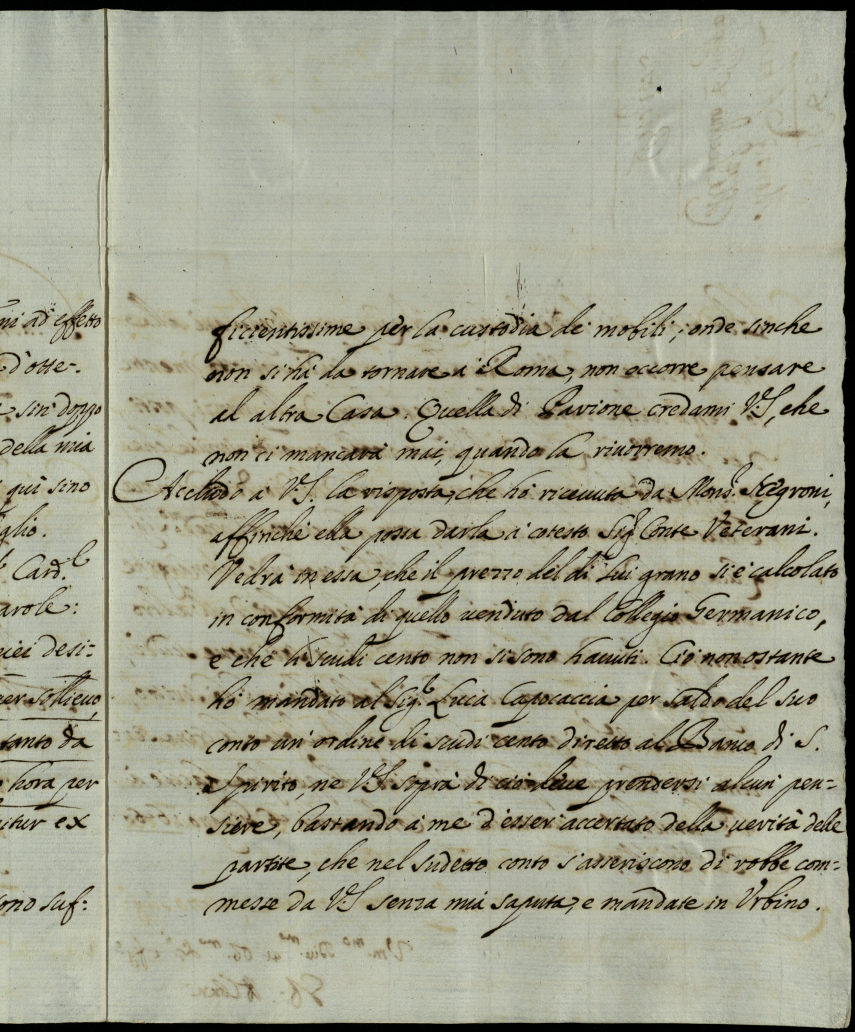 ni ad effetto
d'otte-
sin doppo
della mia
qui sino
glio.
Card.l
arole:
miei desi-
per sollievo,
tanto da
hora per
itur ex
ono suf:
ficientissime per la custodia de mobili; onde sinche
non si hà da tornare a Roma, non occorre pensare
al altra Casa. Quella di Parione credami V.S., che
non ci mancarà mai, quando la rivorremo.
Accludo a V.S. la risposta, che hò ricevuta da Mons.r Negroni,
affinche ella possa darla a cotesto Sig.r Conte Veterani.
Vedrà in essa, che il prezzo del di lui grano si è calcolato
in conformità di quello venduto dal Collegio Germanico,
e che li scudi cento non si sono havuti. Ciò non ostante
hò mandato al Sig.r Luca Capocaccia per saldo del suo
conto un' ordine di scudi cento diretto al Banco di S.
Spirito, ne V.S. sopra di ciò deve prendersi alcun pen-
siere, bastando a me d'esser accertato della verità delle
partite, che nel sudetto conto s'asseriscono di robbe com-
messe da V.S. senza mia saputa, e mandate in Urbino.